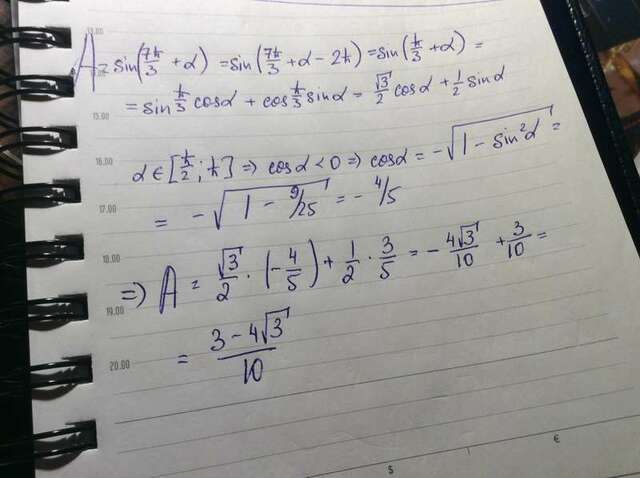 13.00
A = sin(7π/3 + α) = sin(7π/3 + α - 2π) = sin(π/3 + α) =
= sin π/3 cosα + cos π/3 sinα = √3/2 cosα + 1/2 sinα
15.00
α ∈ [π/2; π] ⇒ cosα < 0 ⇒ cosα = -√(1 - sin²α) =
16.00
= -√(1 - 9/25) = - 4/5
17.00
18.00
⇒ A = √3/2 · (-4/5) + 1/2 · 3/5 = - 4√3/10 + 3/10 =
19.00
= (3 - 4√3)/10
20.00
$ €